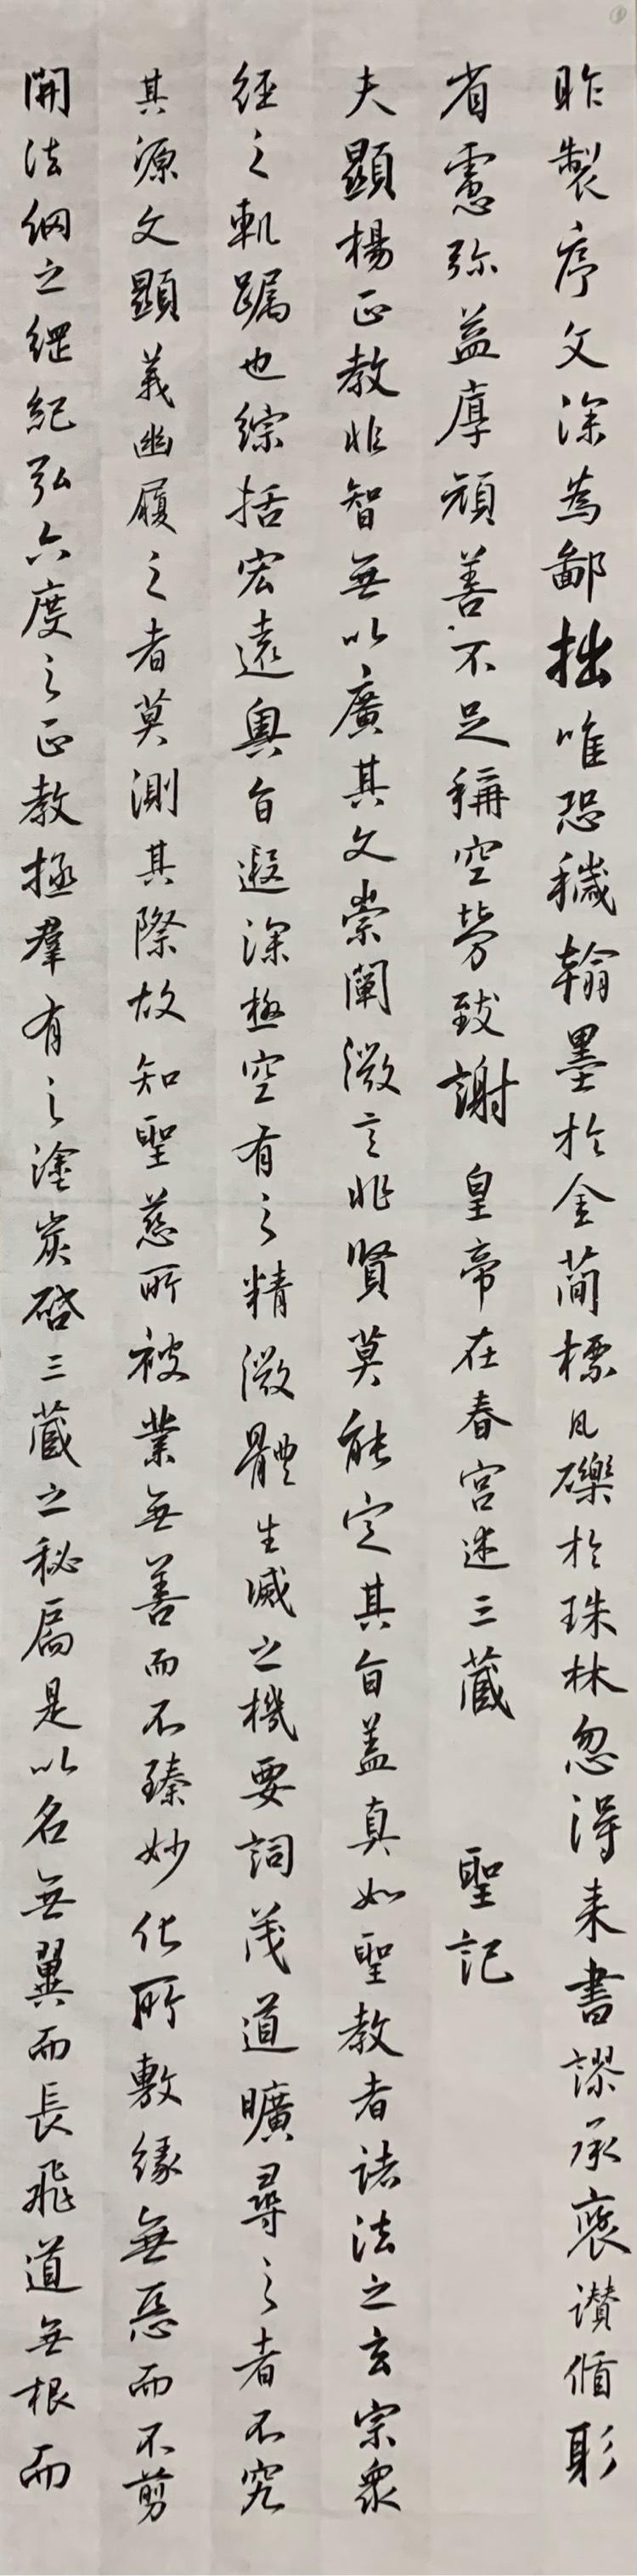 昨製序文深為鄙拙唯恐穢翰墨於金簡標凡礫於珠林忽得来書謬承褒讃循躬
省慮弥益厚顔善不足稱空勞致謝皇帝在春宮述三藏聖記
夫顯揚正教非智無以廣其文崇闡微言非賢莫能定其旨盖真如聖教者諸法之玄宗衆
經之軌躅也綜括宏遠奥旨遐深極空有之精微體生滅之機要詞茂道曠尋之者不究
其源文顯義幽履之者莫測其際故知聖慈所被業無善而不臻妙化所敷緣無惡而不剪
開法網之綱紀弘六度之正教拯羣有之塗炭啓三藏之秘扃是以名無翼而長飛道無根而